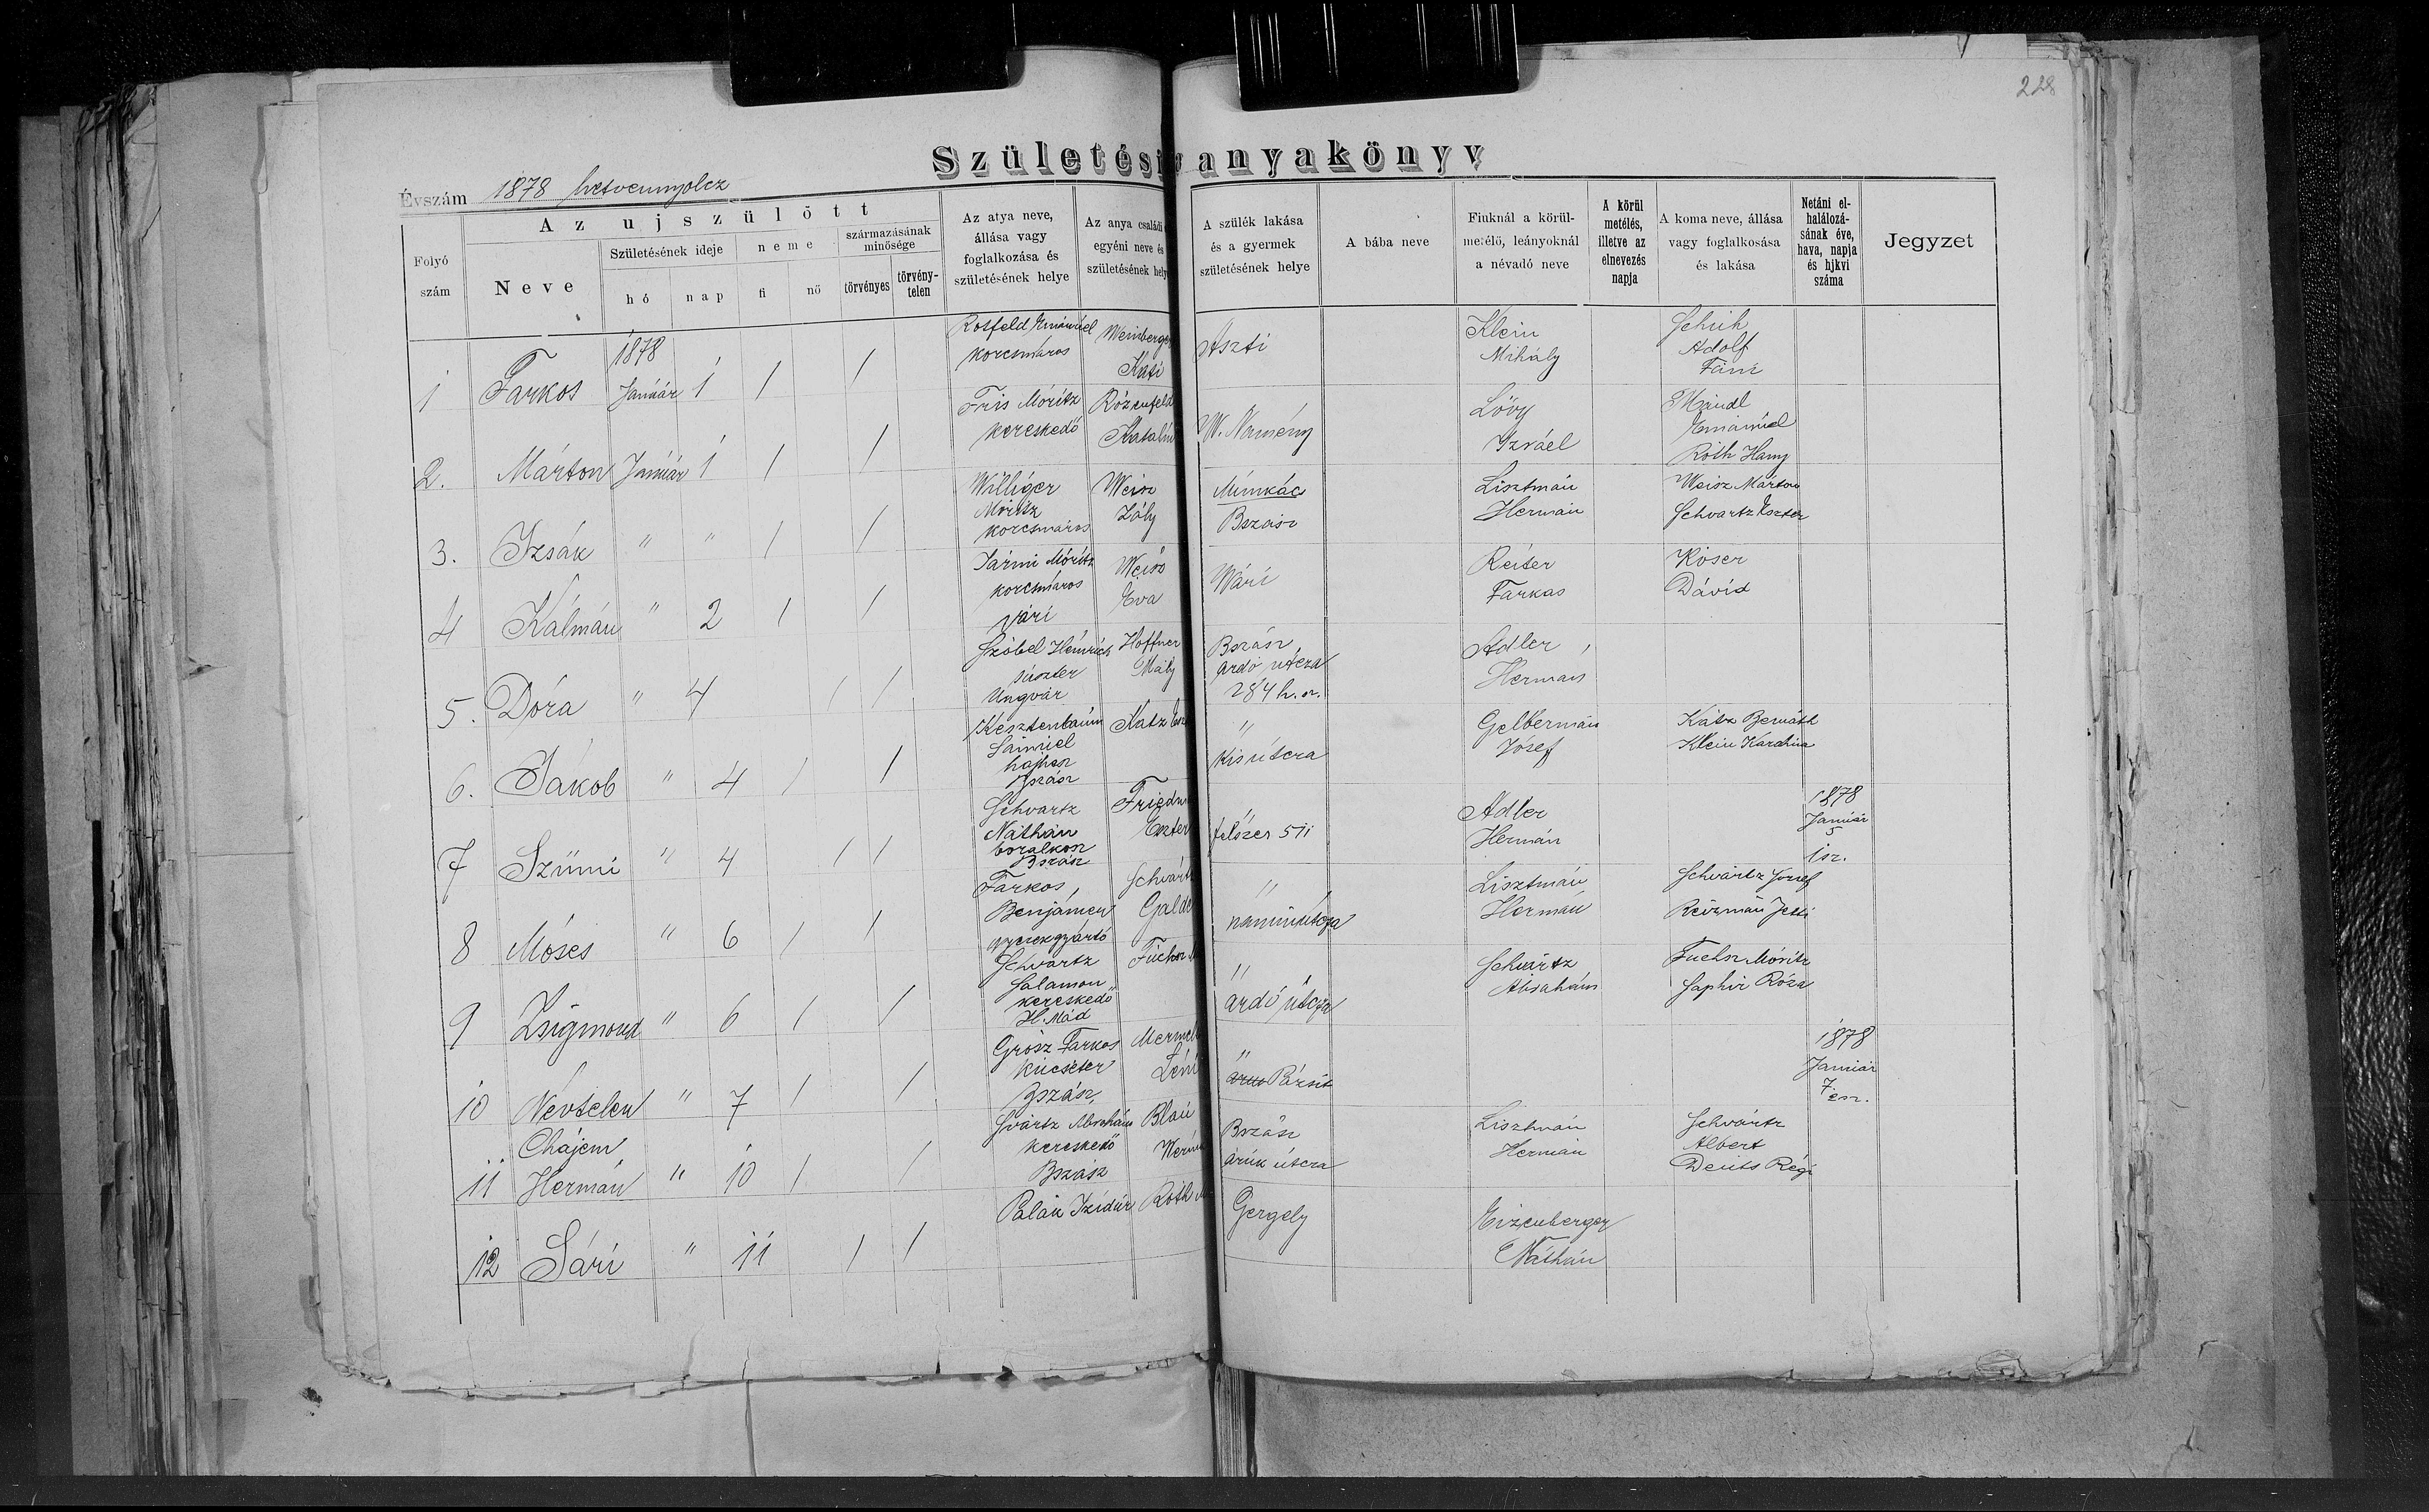 228
Születési anyakönyv
Évszám 1878 hetvennyolcz
Folyó szám
Az ujszülött
Neve
Születésének ideje
hó
nap
neme
fi
nö
származásának minősége
törvényes
törvénytelen
Az atya neve, állása vagy foglalkozása és születésének helye
Az anya családi
egyéni neve és
születésének hely
A szülék lakása és a gyermek születésének helye
A bába neve
Fiuknál a körülmetélö, leányoknál a névadó neve
A körül metélés, illetve az elnevezés napja
A koma neve, állása vagy foglalkosása és lakása
Netáni elhalálozásának éve, hava, napja és hjkvi száma
Jegyzet
1 Farkos 1878 Január 1 / / Rosfeld Emánuel korcsmáros Weinberger Káti Aszti Klein Mihály Schük Adolf Fáni
2. Márton Január 1 / / Fris Móritz kereskedő Rózenfeld Katalin W. Namény Lövy Izráel Maudl Emánuel Roth Hany
3. Izsák " " / / Williger Móritz korcsmáros Weisz Zály Munkács Bszász Lisztmán Hermán Weisz Márton Schvartz Eszter
4 Kálmán " 2 / / Jármi Móritz korcsmáros Vári Weisz Éva Wári Reiter Farkas Koser Dávid
5. Dóra " 4 / / Szóbel Heinrich suszter Ungvár Hoffner Mály Bszász Ardó útcza 284 h. sz. Adler Herman
6. Jákob " 4 / / Kesztenbaum Sámuel hajhsz Bszász Katz Esz " Kis útcza Gelbermán Józef Katz Bernáth Klein Karolina
7 Szümi " 4 / / Schvartz Náthán Bszász Friedm Eszter felszer 511 Adler Hermán 1878 Január 5 1 sz.
8 Móses " 6 / / Farkos, Benjámen Schvárt Galde " Lisztmán Herman Schvártz József Reizmán Jetti
9 Zsigmond " 6 / / Schvartz Salamon kereskedő H. Mád Fuchsz " ardó útcza Schvártz Abrahám Fuchsz Móritz Saphir Róza
10 Névtelen " 7 / / Grósz Farkos Bszász, Mermel Léni " Január 1878 7.
11 Chájem Hermán " 10 / / Svártz Abrahám kereskedő Bszász Blau Bszász Arúk útcza Lisztmán Hermán Schvártz Albert Deuts Régi
12 Sári " 11 / / Palák Izidúr Roth Gergely Eizenberger Náthán